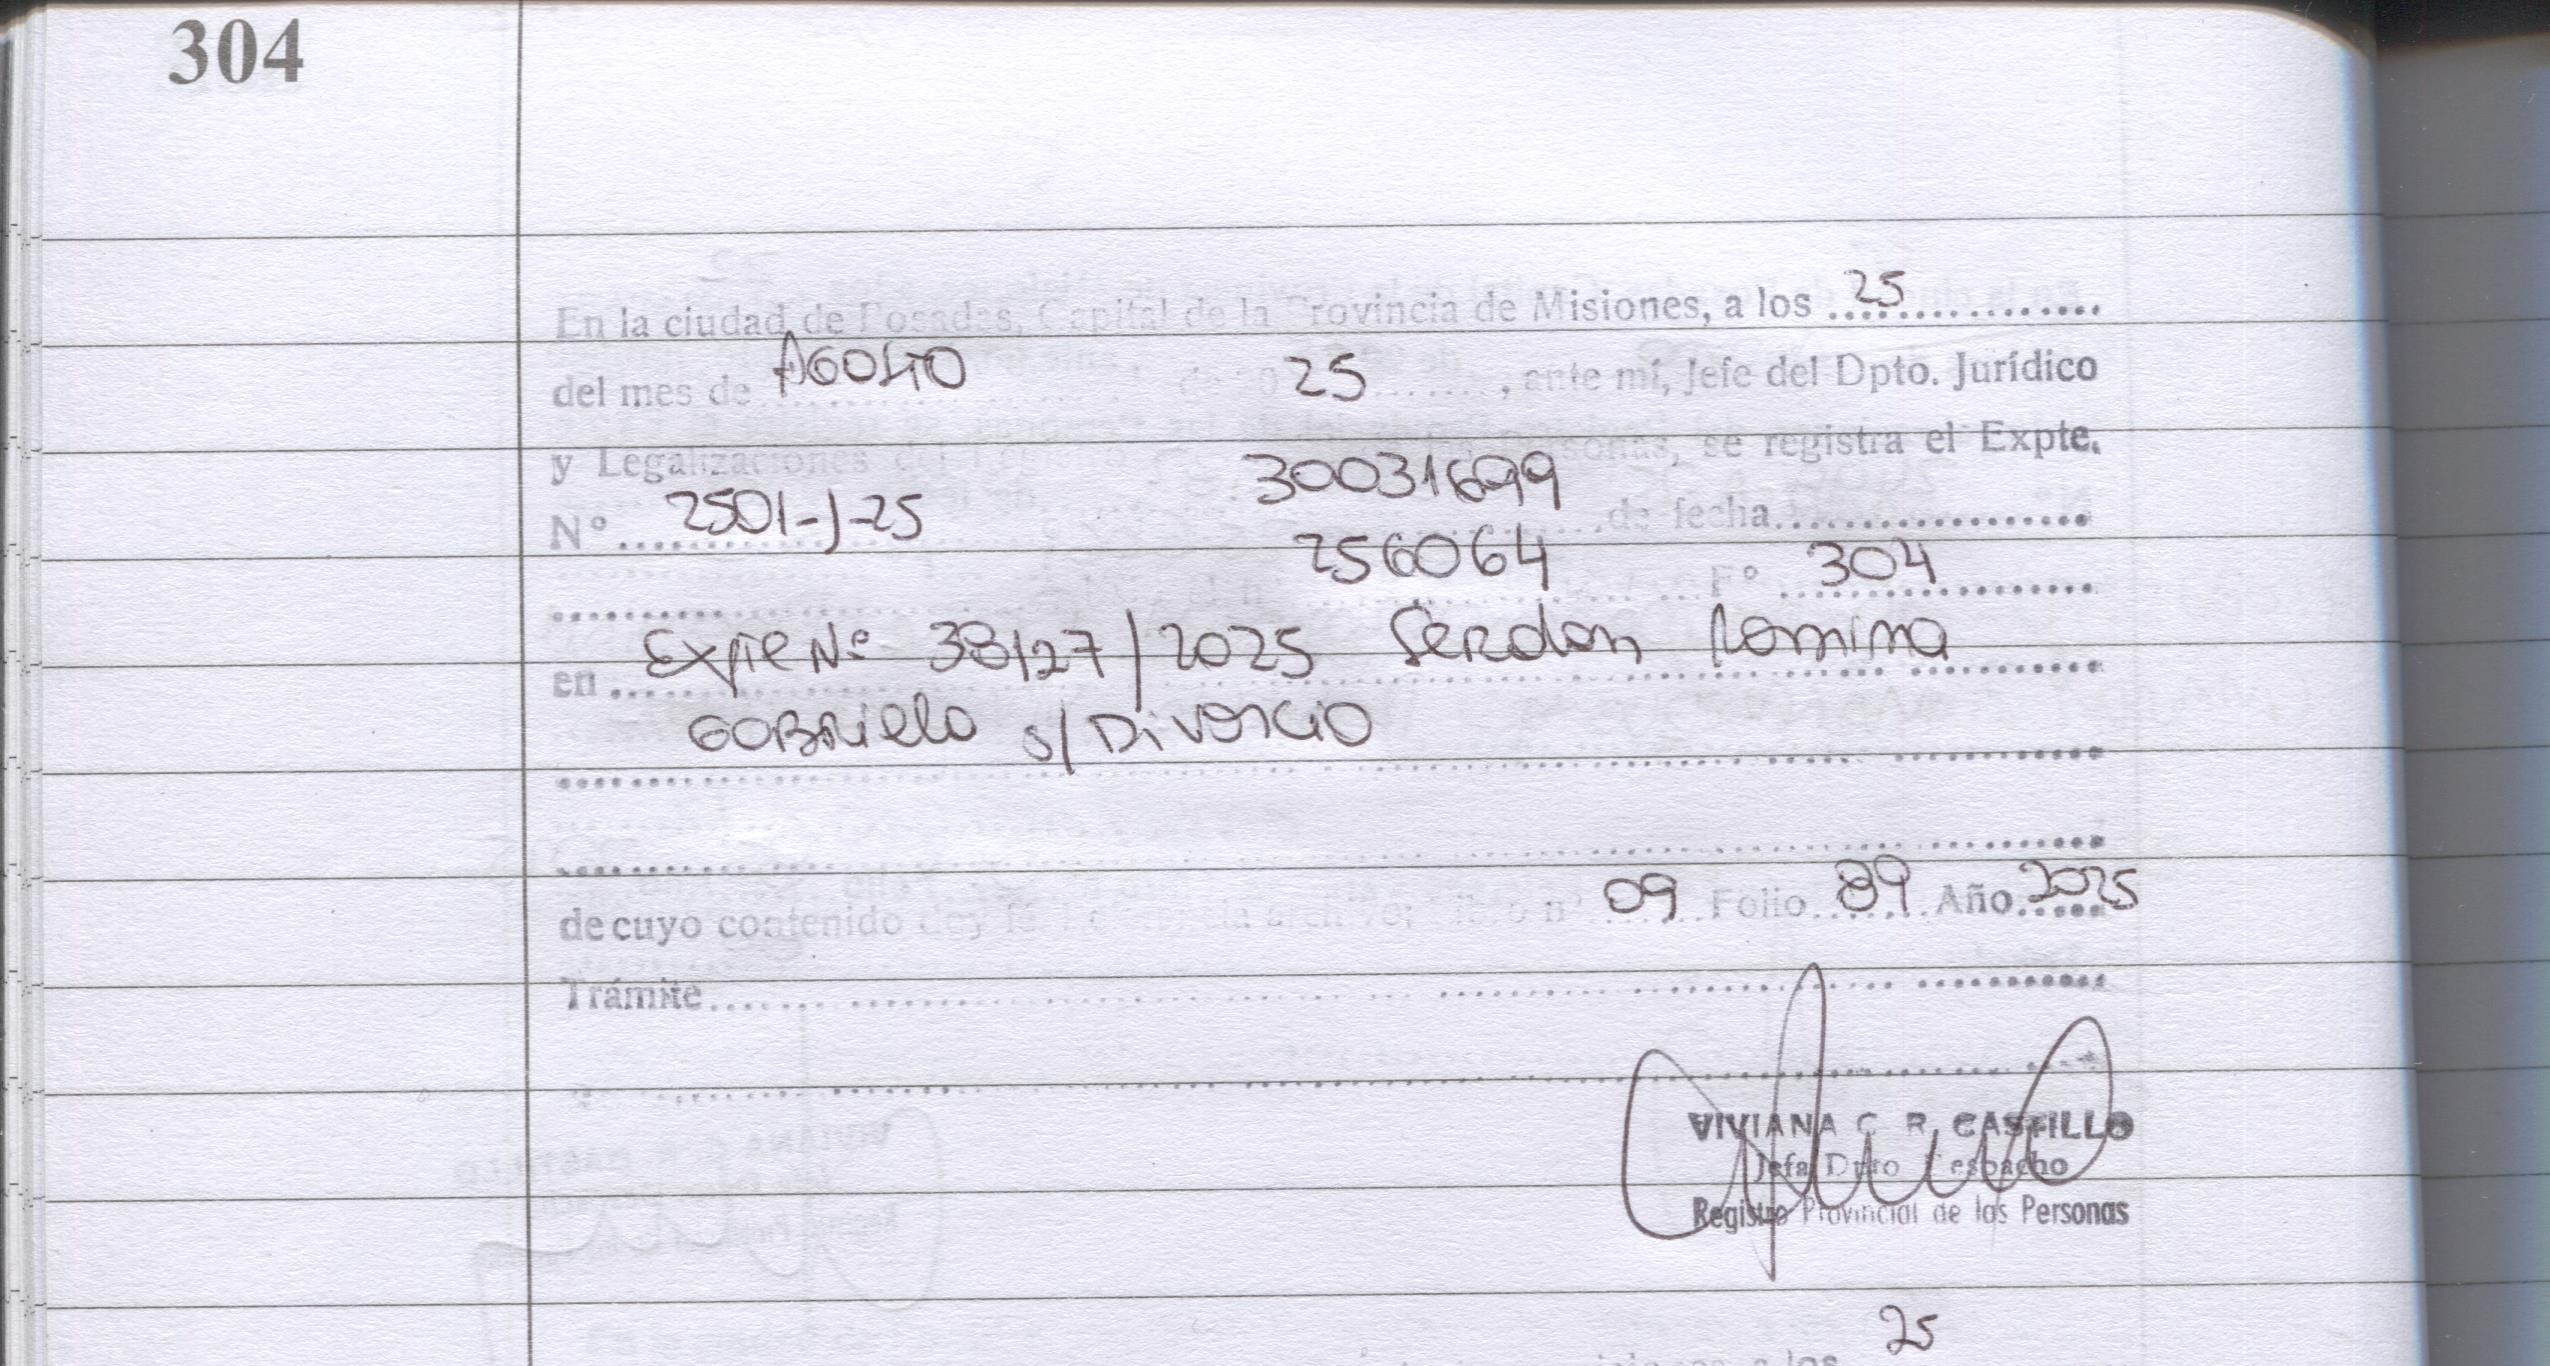 304
En la ciudad de Posadas, Capital de la Provincia de Misiones, a los 25
del mes de AGOSTO de 20 25, ante mí, Jefe del Dpto. Jurídico
y Legalizaciones del Personas, se registra el Expte.
30031699
N° 2501-J-25 de fecha
256064 F° 304
en Expte Nº 38127/2025 Romina
GABRIELA s/ DIVORCIO
de cuyo contenido doy fe Libro n° 09 Folio 89 Año 2025
Trámite
VIVIANA C. R. CASTILLO
Jefa Dpto Despacho
Registro Provincial de las Personas
25
a los